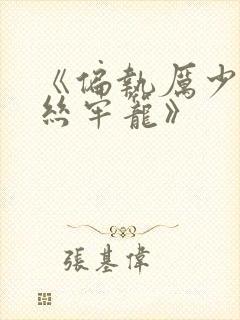 《偏執厲少
絲牢籠》
張基偉